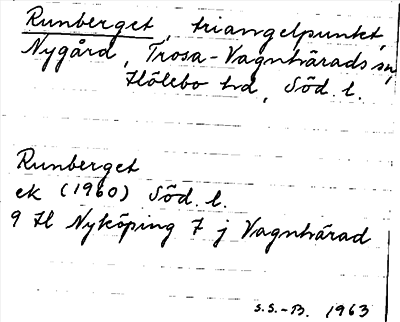 Runberget, triangelpunkt,
Nygård, Trosa-Vagnhärads sn,
Hölebo hd, Söd. l.
Runberget
ek (1960) Söd. l.
9 H Nyköping 7 j Vagnhärad
S.S.-B. 1963